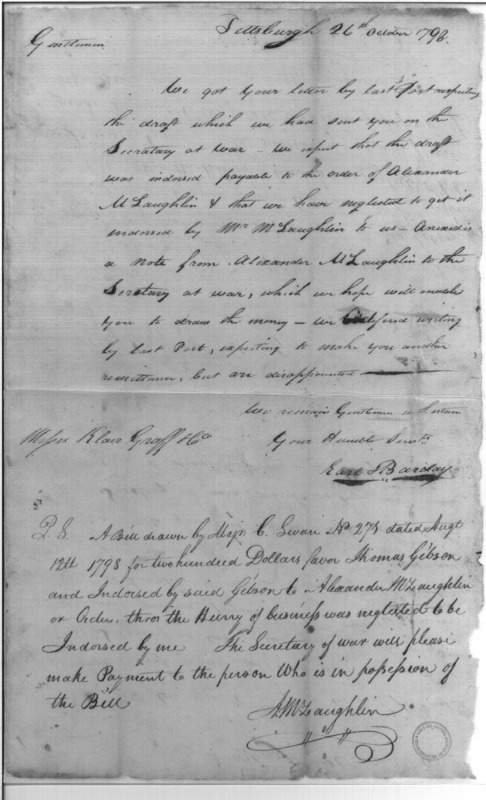 Pittsburgh 26th October 1798.
Gentlemen
We got your letter by last Post respecting
the draft which we had sent you on the
Secretary at War - we expect that the draft
was indorsed payable to the order of Alexander
McLaughlin & that we have neglected to get it
indorsed by Mr McLaughlin to us - Annexed is
a note from Alexander McLaughlin to the
Secretary at War, which we hope will enable
you to draw the money - we defered writing
by last Post, expecting to make you another
remittance, but are disappointed
We remain Gentlemen with esteem
Messrs Klaer Graff & Co Your Humble Servts
Earl Barclay
P.S. A Bill drawn by Majr C. Swan No 275 dated Augt
12th 1798 for two hundred Dollars favor Thomas Gibson
and Indorsed by said Gibson to Alexander McLaughlin
or Order. thro the Hurry of business was neglected to be
Indorsed by me The Secretary of War will please
make Payment to the person Who is in possession of
the Bill
A McLaughlin